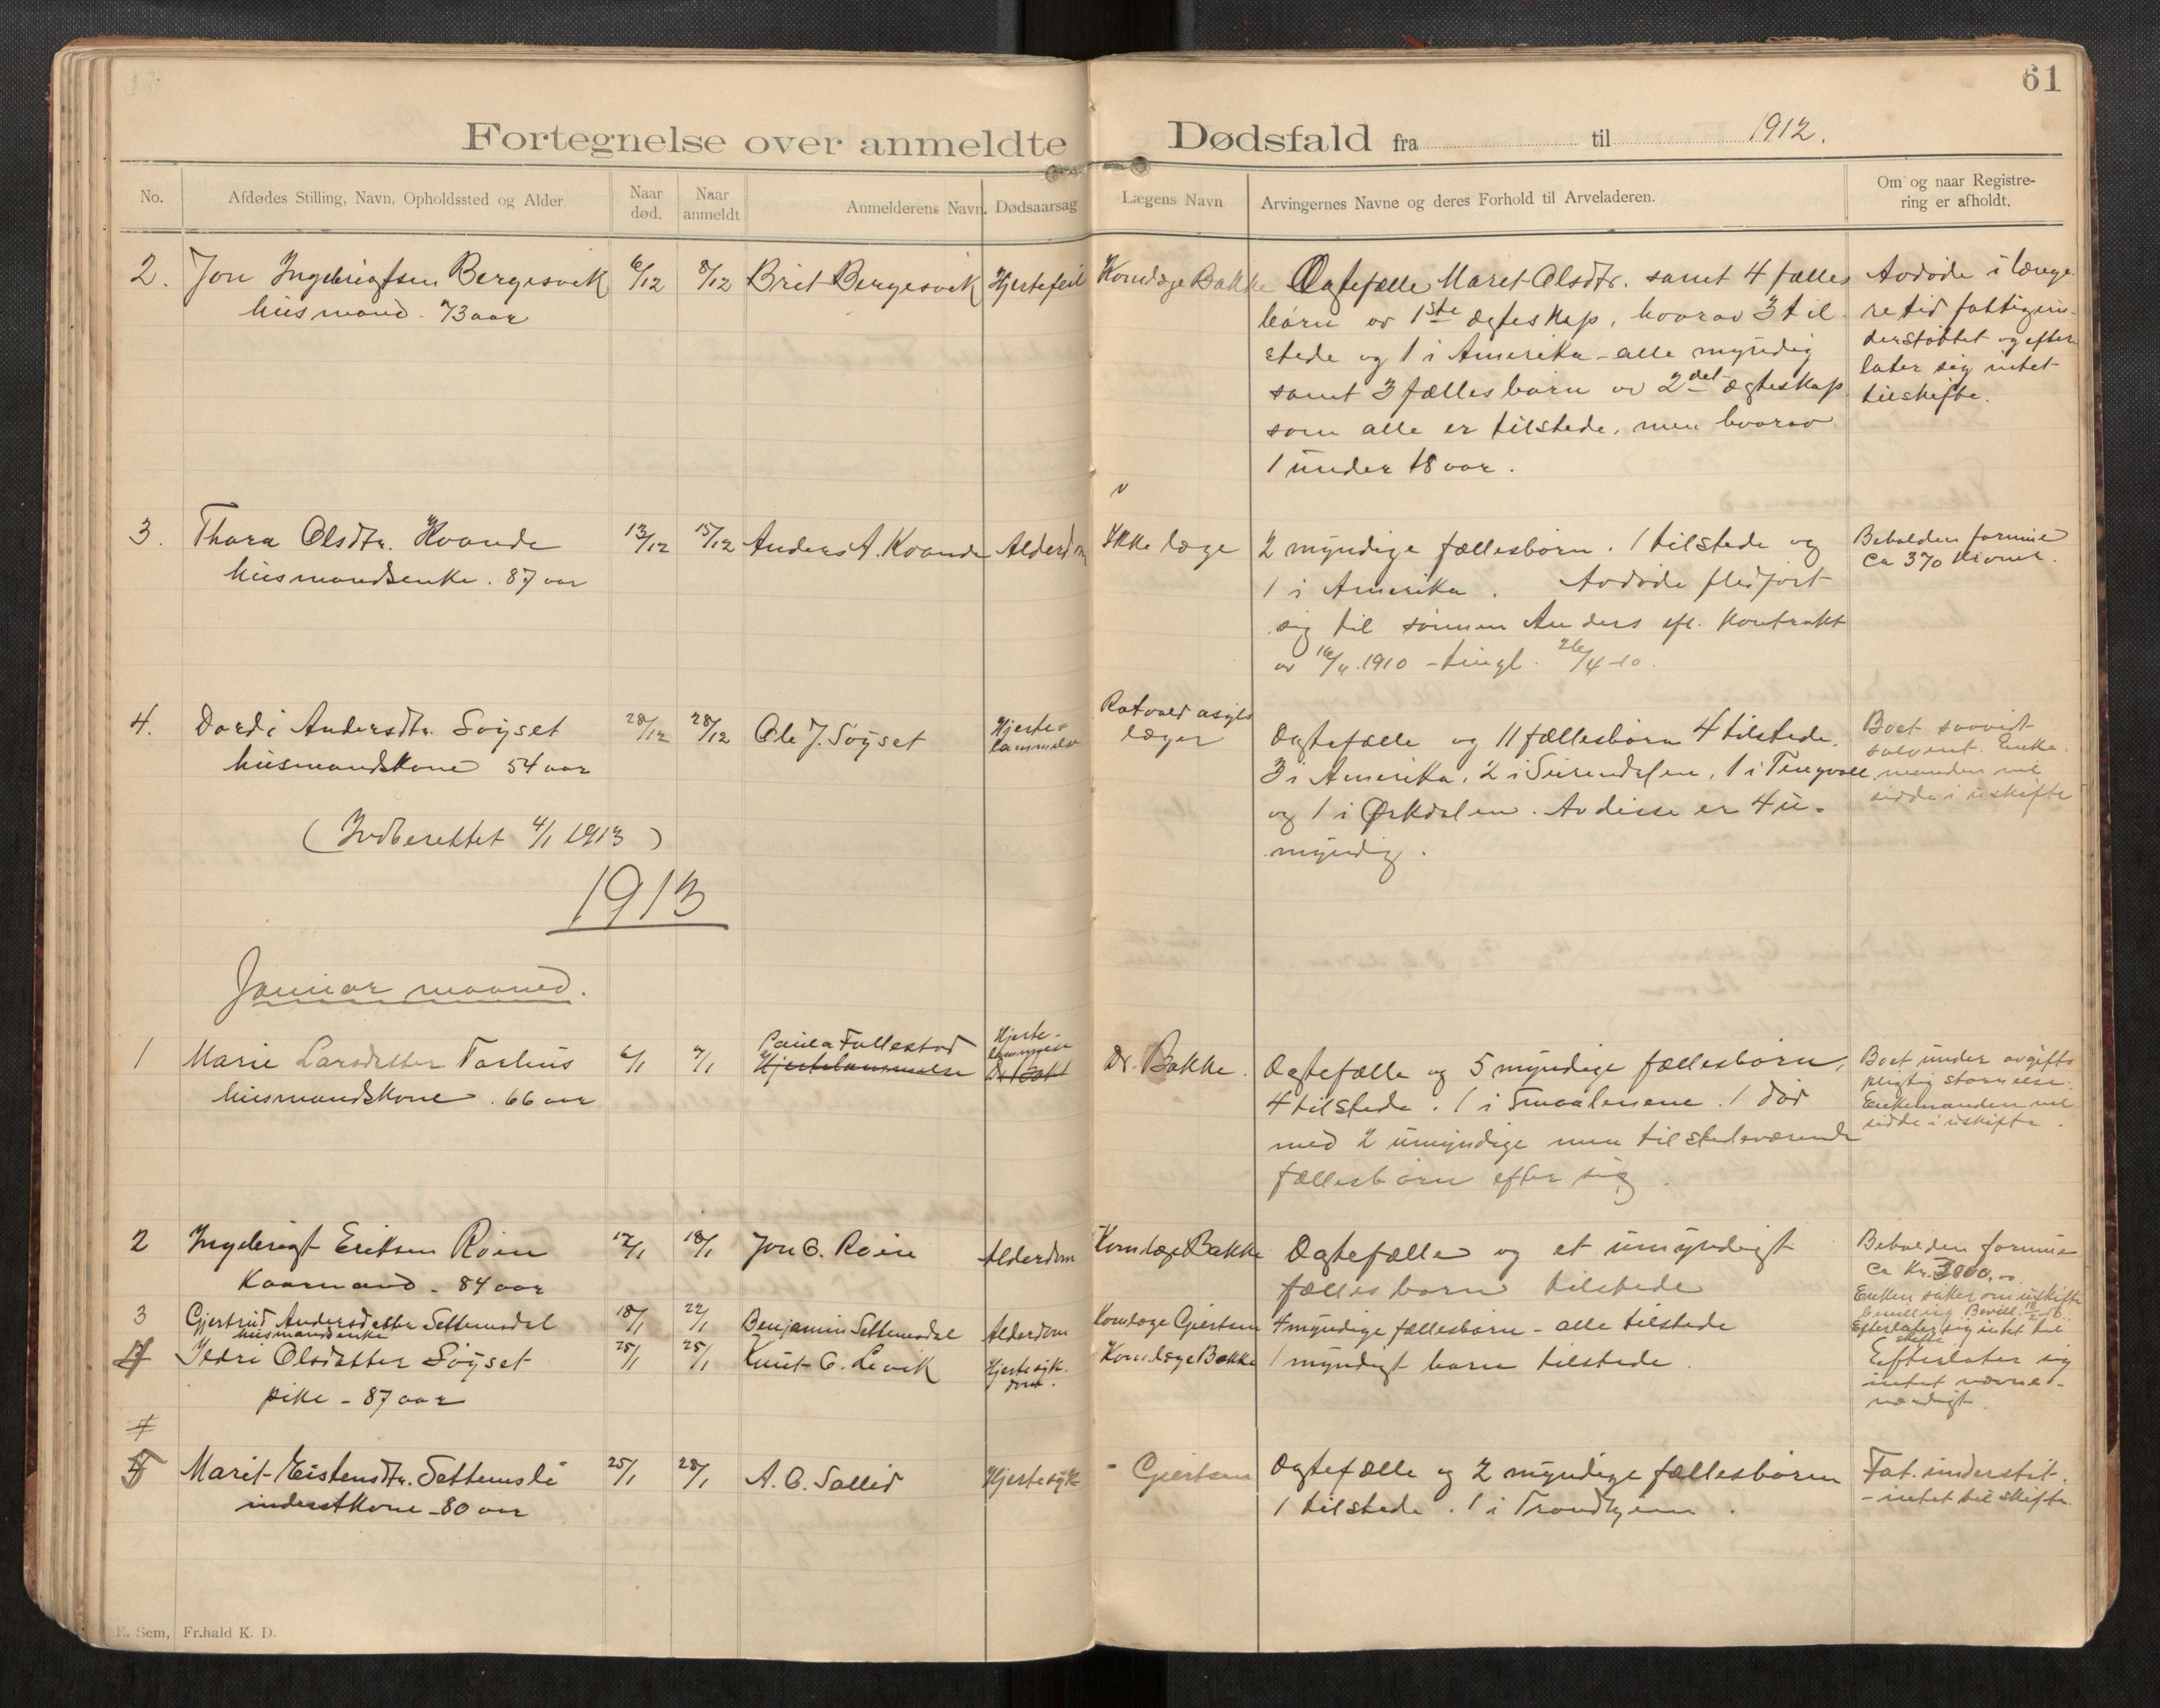 61
Fortegnelse over anmeldte Dødsfald fra til 1912.
No. Afdødes Stilling, Navn, Opholdssted og Alder Naar død. Naar anmeldt Anmelderens Navn. Dødsaarsag Lægens Navn Arvingernes Navne og deres Forhold til Arveladeren. Om og naar Registrering er afholdt.
2. Jon Ingebrigtsen Bergesvik 6/12 8/12 Brit Bergesvik Hjertefeil Komlæge Bakke
husmand - 73 aar
Ægtefælle Maret Olsdtr. samt 4 fælles
børn av 1ste ægteskap, hvorav 3 til
stede og 1 i Amerika - alle myndig
samt 3 fællesbørn av 2det ægteskap
som alle er tilstede, men hvorav
1 under 18 aar.
Avdøde i længe
re tid fattigun-
derstøttet og efter
later sig intet
til skifte.
3. Thora Olsdtr. Kvande 13/12 15/12 Anders A. Kvande Alderdom Ikke læge
husmandsenke. 87 aar
2 myndige fællesbørn. 1 tilstede og
1 i Amerika. Avdøde fledført
sig til sønnen Anders efl. kontrakt
av 16/4 1910 - tingl. 26/4-10.
Beholden formue
ca 370 kroner.
4. Dordi Andersdtr. Søyset 28/12 28/12 Ole J. Søyset Hjerte-
lammelse
husmandskone 54 aar
Rotvold asyls
læger
Ægtefælle og 11 fællesbørn 4 tilstede.
3 i Amerika, 2 i Surendalen, 1 i Tingvoll
og 1 i Ørkdalen. Av disse er 4 u-
myndig.
Boet saavidt
solvent. Enke-
manden vil
sidde i uskifte
(Indberettet 4/1 1913)
1913
Januar maaned.
1 Marie Larsdatter Torhus 6/1 7/1 Paula Fullestad
Hjertelammelse
Hjerte-
lammelse
Dr. Bakke
husmandskone. 66 aar
Ægtefælle og 5 myndige fællesbørn,
4 tilstede. 1 i Smaalenene. 1 død
med 2 umyndige men tilstedeværende
fællesbørn efter sig.
Boet under avgifts
pligtig størrelse.
Enkemanden vil
sidde i uskifte.
2 Ingebrigt Eriksen Røen 17/1 18/1 Jon O. Røen Alderdom Komlæge Bakke
Kaarmand - 84 aar
Ægtefælle og et umyndigt
fællesbarn tilstede
Beholden formue
ca kr. 3000,00
Enken søker om uskifte
bevilling
3 Gjertrud Andersdatter Settemsdal 18/1 22/1 Benjamin Settemsdal Alderdom Komlæge Gjertsen 4 myndige fællesbørn - alle tilstede
husmandsenke
Efterlater sig intet til
skifte
4 Ildri Olsdatter Søyset 25/1 25/1 Knut O. Levik Hjertesyk-
dom. Kom.læge Bakke 1 myndigt barn tilstede.
pike - 87 aar
Efterlater sig
intet nævne-
værdigt.
4
5 Marit Eistensdtr. Settemsli 25/1 28/1 A. O. Sollid Hjertesyk - Gjertsen
inderstkone - 80 aar
Ægtefælle og 2 myndige fællesbørn
1 tilstede. 1 i Trondhjem.
Fat. underståt.
- intet til skifte.
E. Sem, Fr.hald K. D.